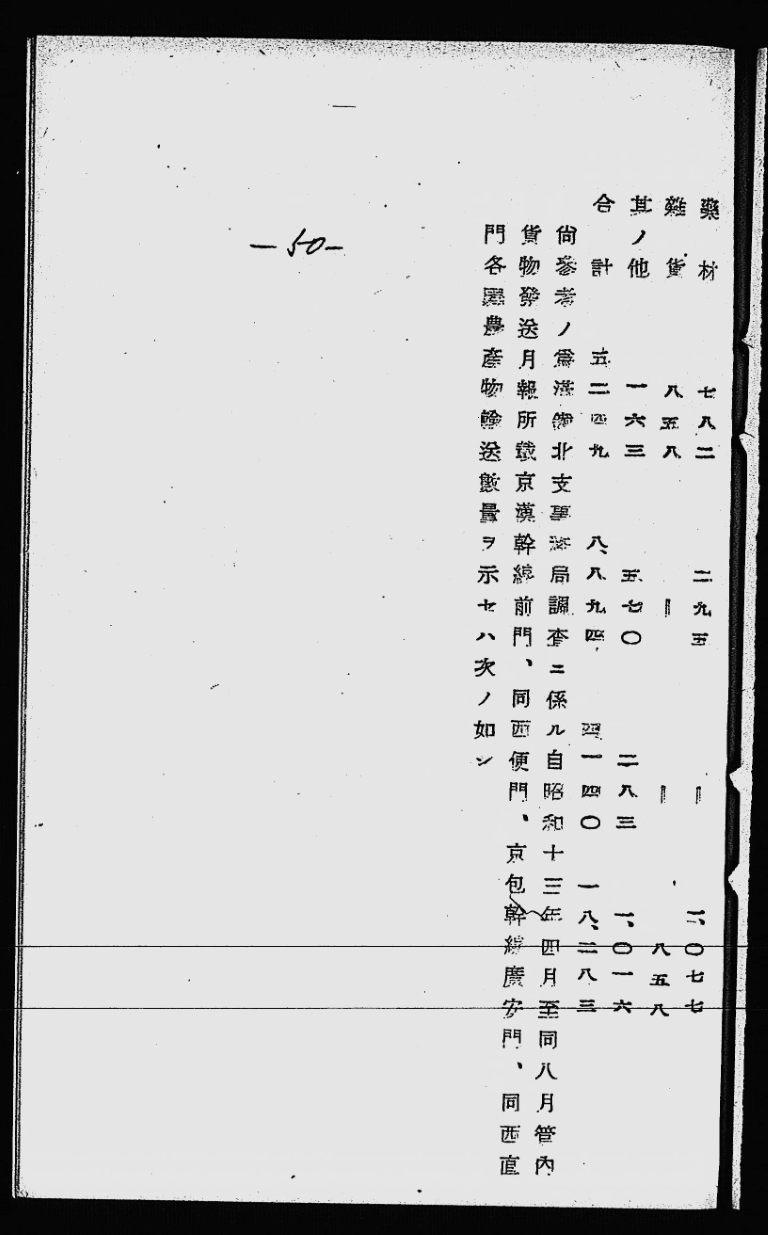 藥材 七八二 二九五 — 一、〇七七
雜貨 八五八 — — 八五八
其ノ他 一六三 五七〇 二八三 一、〇一六
合計 五二四九 八、八九四 四一四〇 一八、二八三
尙參考ノ爲滿鐵北支事務局調査ニ係ル自昭和十三年四月至同八月管內
貨物發送月報所載京漢幹線前門、同西便門、京包幹線廣安門、同西直
門各驛農產物輸送數量ヲ示セハ次ノ如シ
—50—